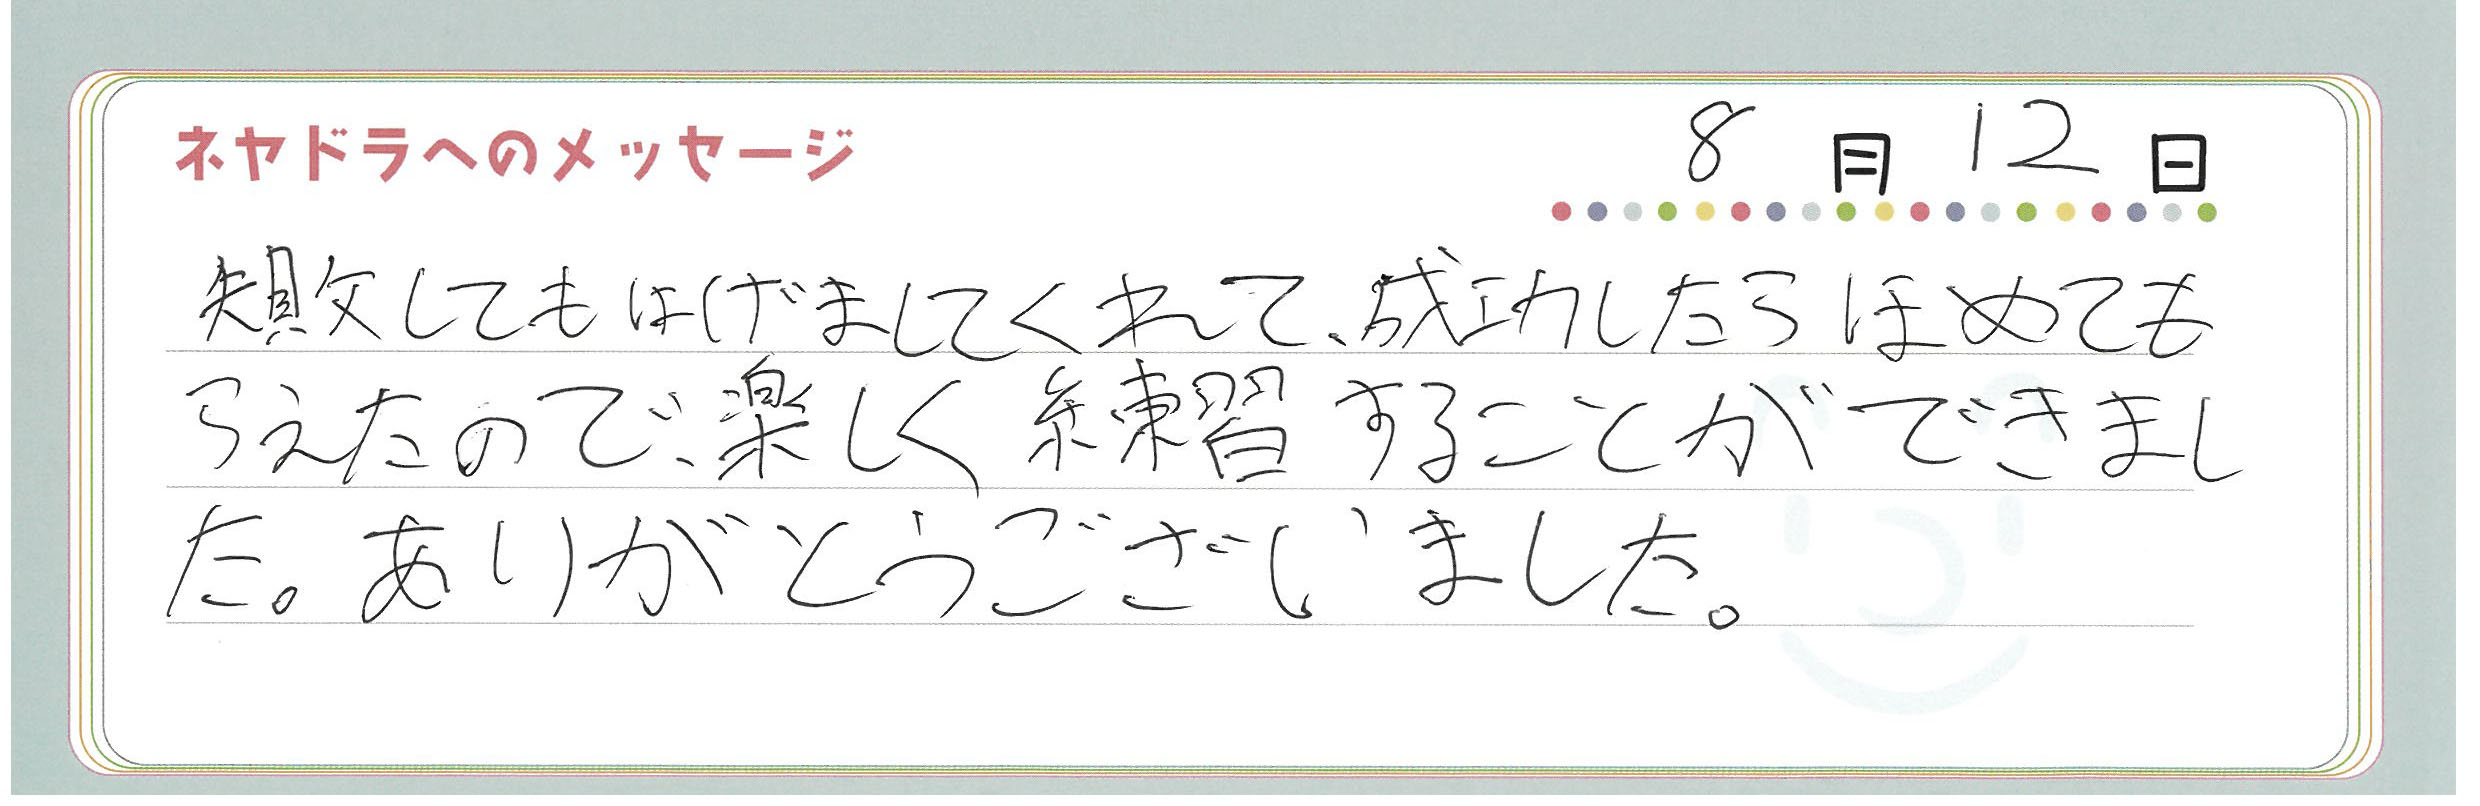 ネヤドラへのメッセージ
8月12日
失敗してもはげましてくれて、成功したらほめても
らえたので、楽しく練習することができまし
た。ありがとうございました。